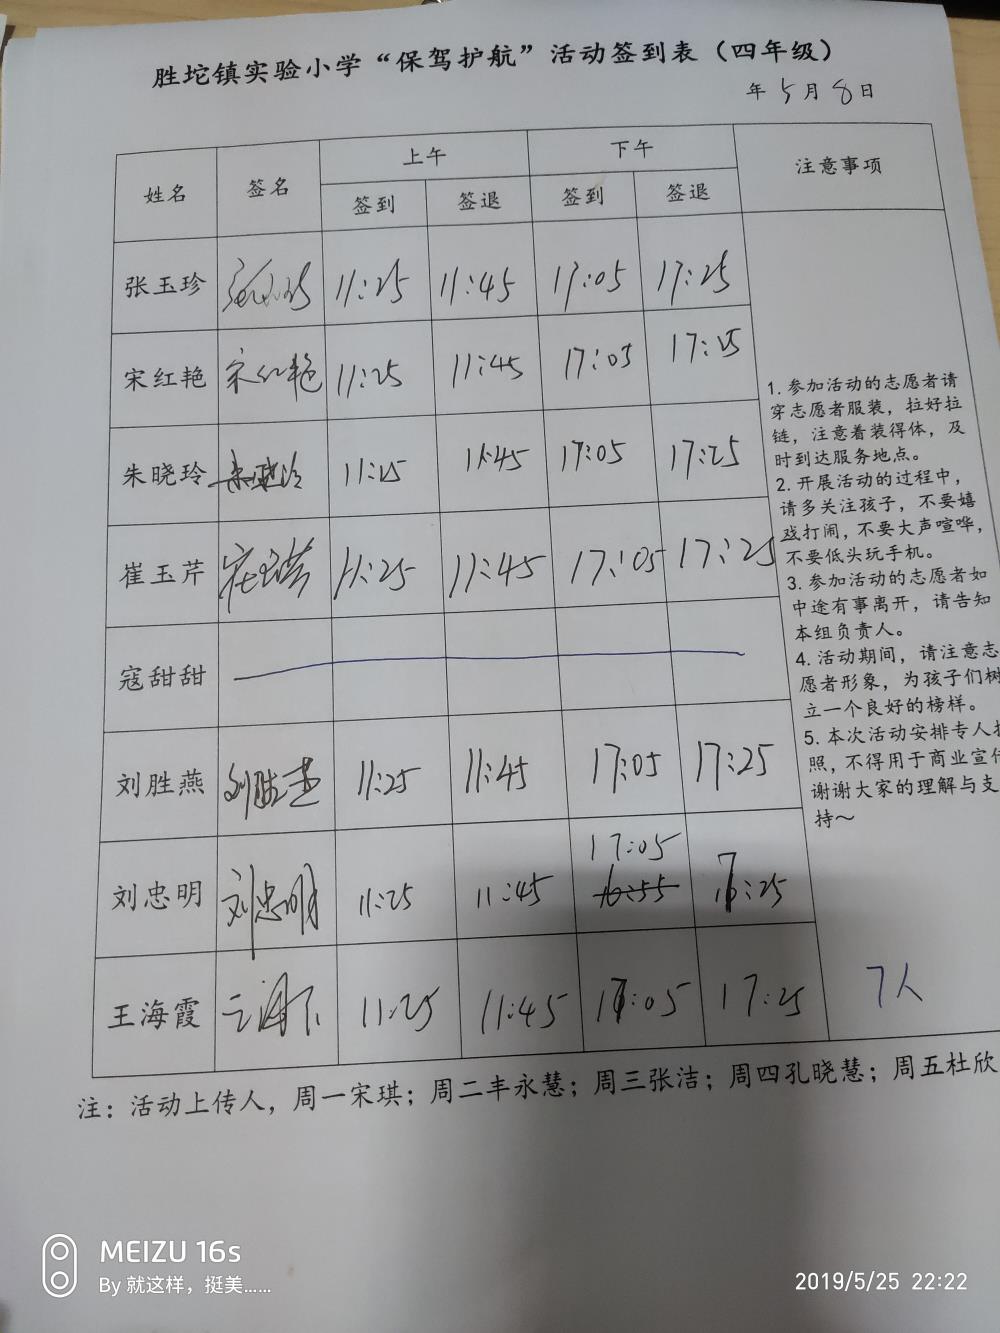 胜坨镇实验小学“保驾护航”活动签到表（四年级）
年 5月 8日
姓名 签名 上午 下午 注意事项
签到 签退 签到 签退
张玉珍 11:25 11:45 17:05 17:25
宋红艳 宋红艳 11:25 11:45 17:05 17:25
朱晓玲 11:25 11:45 17:05 17:25
崔玉芹 11:25 11:45 17:05 17:25
寇甜甜
刘胜燕 刘胜燕 11:25 11:45 17:05 17:25
17:05
刘忠明 刘忠明 11:25 11:45 16:55 17:25
王海霞 11:25 11:45 17:05 17:25
1. 参加活动的志愿者请
穿志愿者服装，拉好拉
链，注意着装得体，及
时到达服务地点。
2. 开展活动的过程中，
请多关注孩子，不要嬉
戏打闹，不要大声喧哗，
不要低头玩手机。
3. 参加活动的志愿者如
中途有事离开，请告知
本组负责人。
4. 活动期间，请注意志
愿者形象，为孩子们树
立一个良好的榜样。
5. 本次活动安排专人
照，不得用于商业宣
谢谢大家的理解与支
持～
7人
注：活动上传人，周一宋琪；周二丰永慧；周三张洁；周四孔晓慧；周五杜欣
MEIZU 16s
By 就这样，挺美……
2019/5/25 22:22